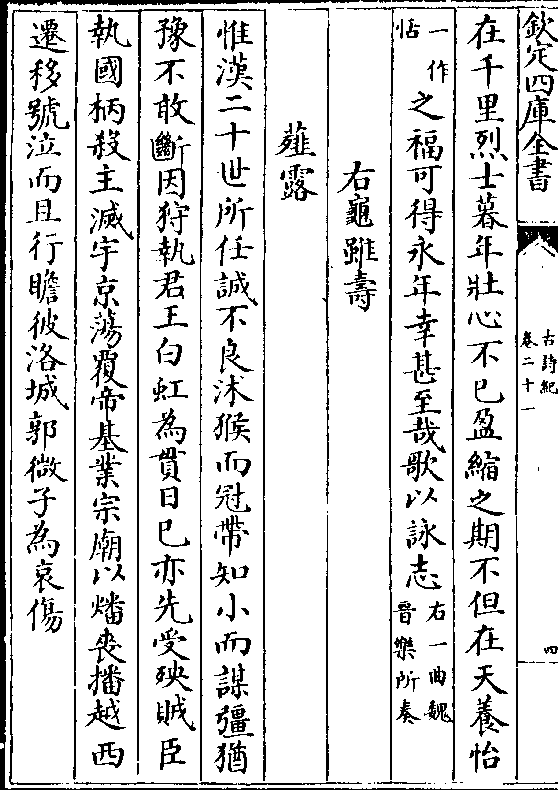 欽定四庫全書
古詩紀
卷二十一
四
在千里烈士暮年壯心不已盈縮之期不但在天養怡
一作
恬
之福可得永年幸甚至哉歌以詠志
右一曲魏
晉樂所奏
右龜雖壽
薤露
惟漢二十世所任誠不良沐猴而冠帶知小而謀彊猶
豫不敢斷因狩執君王白虹為貫日已亦先受殃賊臣
執國柄殺主滅宇京蕩覆帝基業宗廟以燔喪播越西
遷移號泣而且行瞻彼洛城郭微子為哀傷